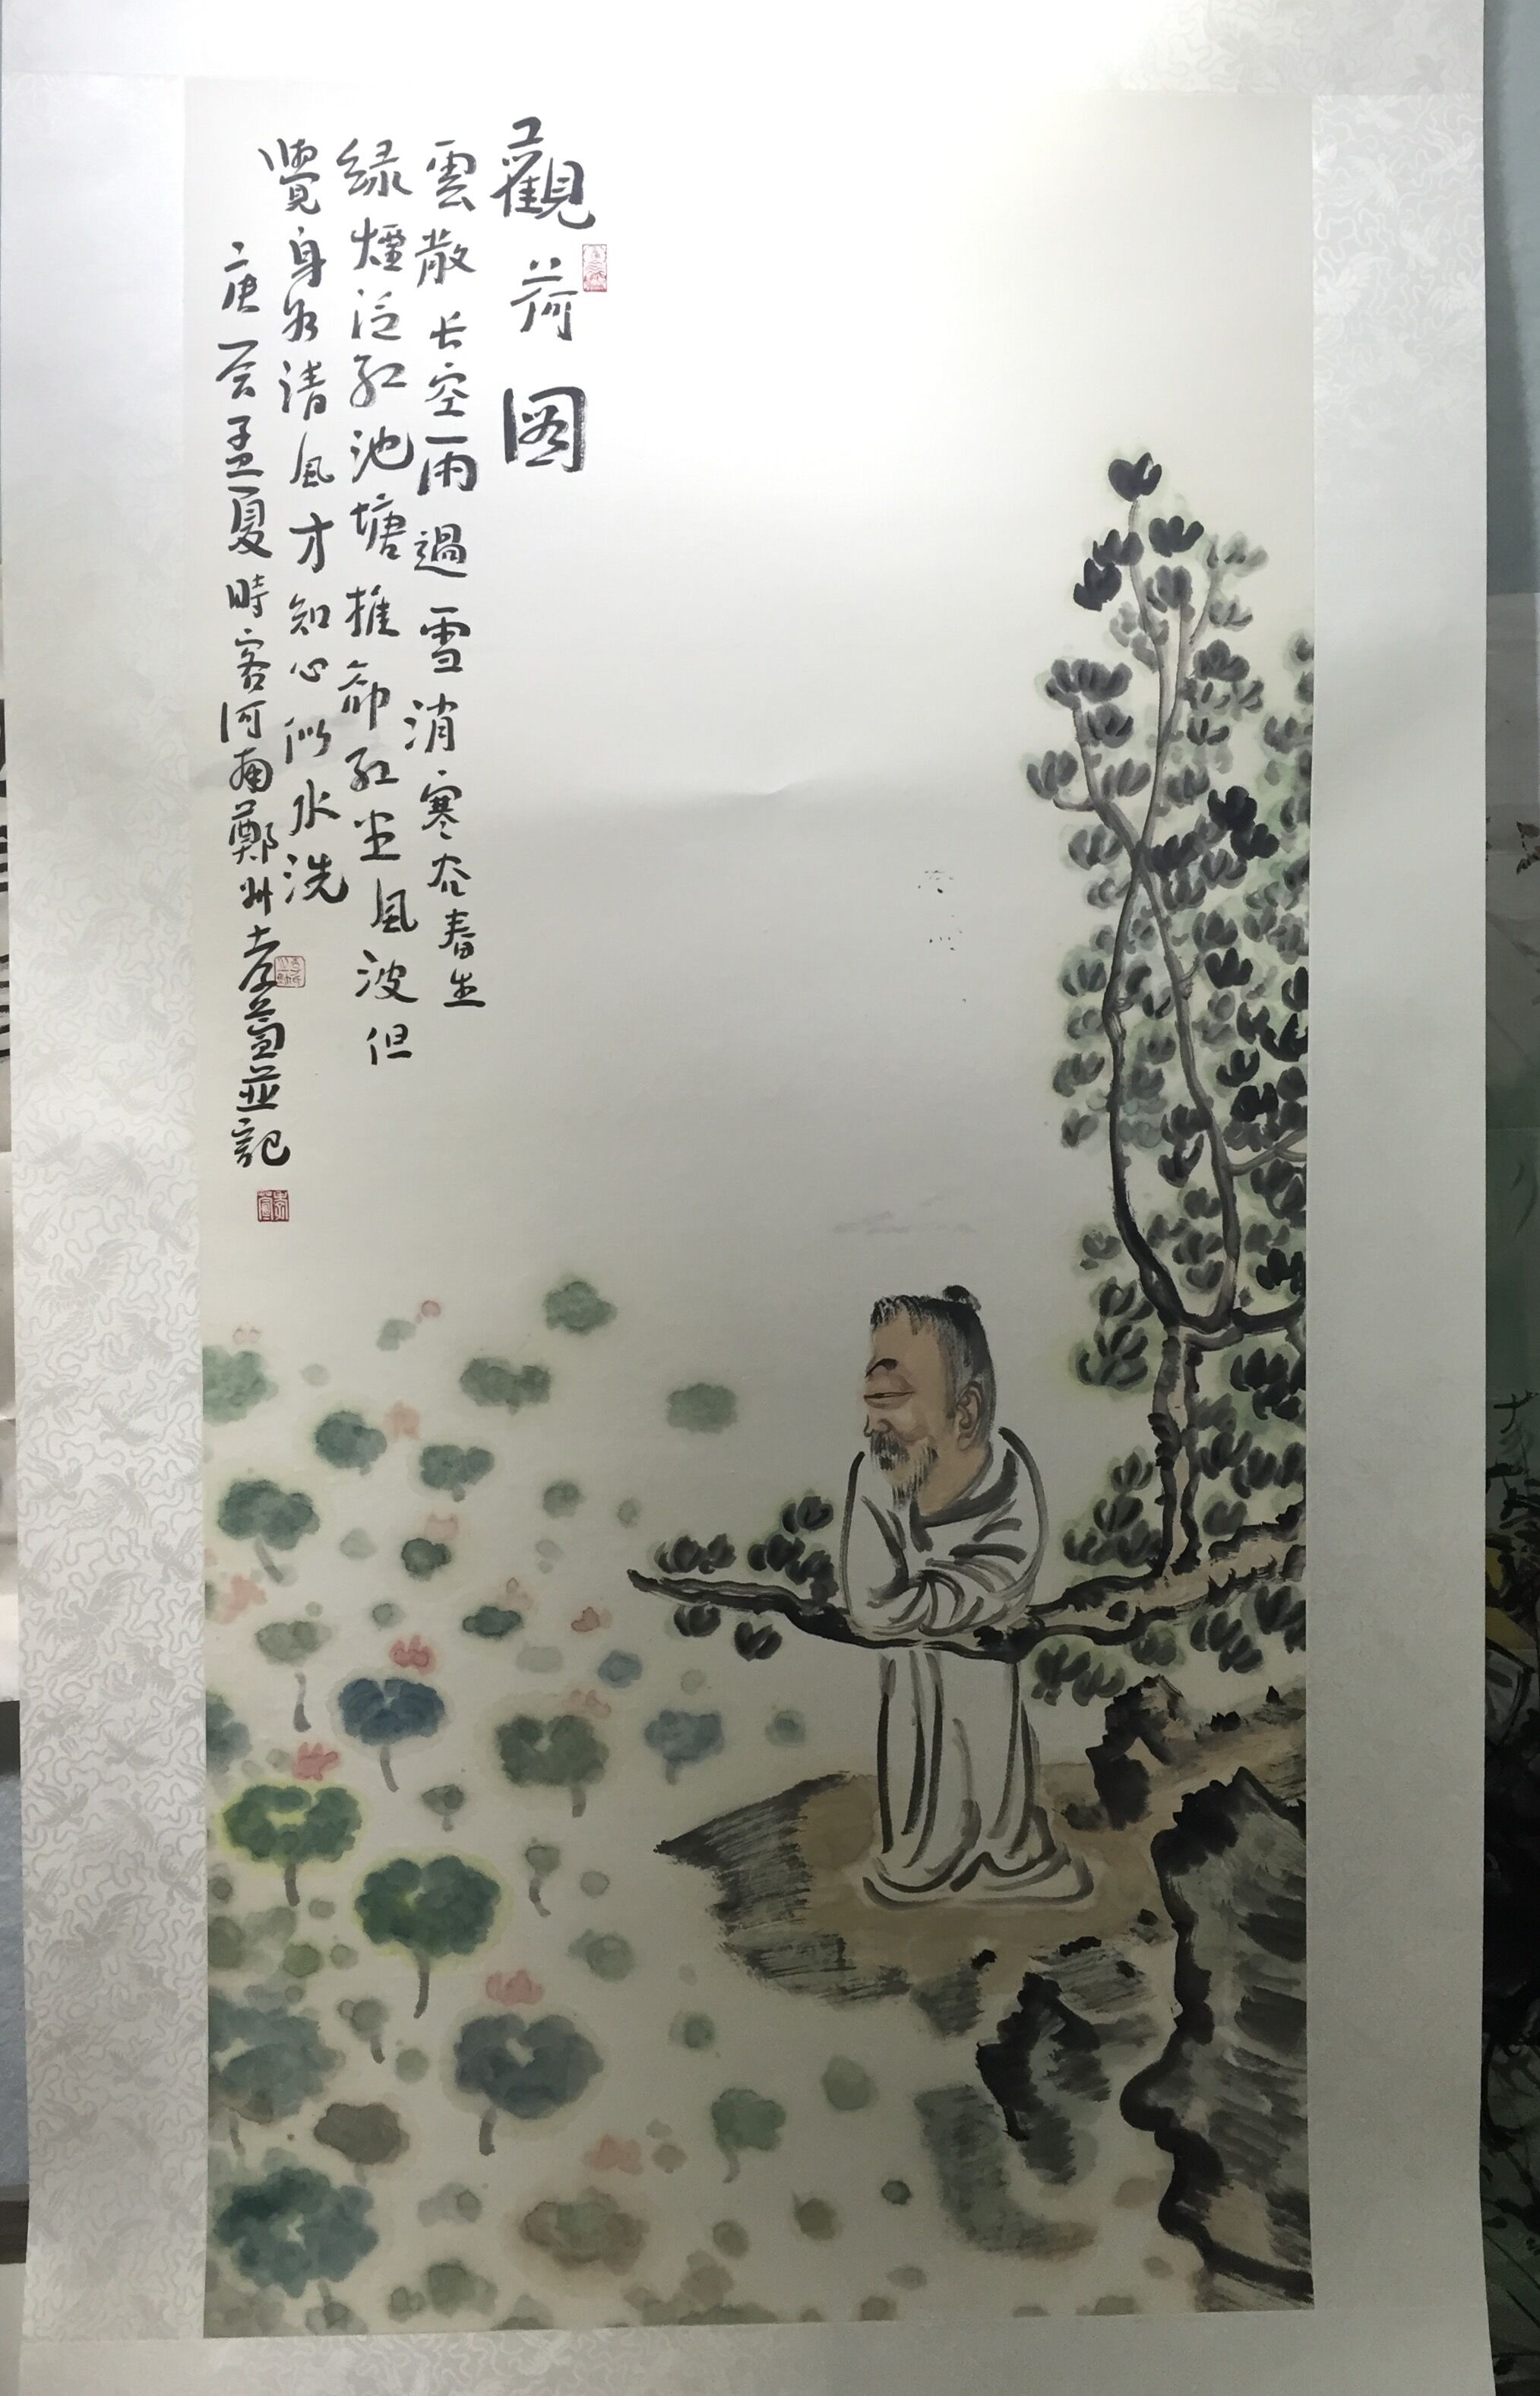 觀荷图
雲散长空雨過雪消寒谷春生
緑煙泛紅池塘推却紅尘風波但
覺身如清風才知心似水洗
庚子孟夏時客河南鄭州 並記